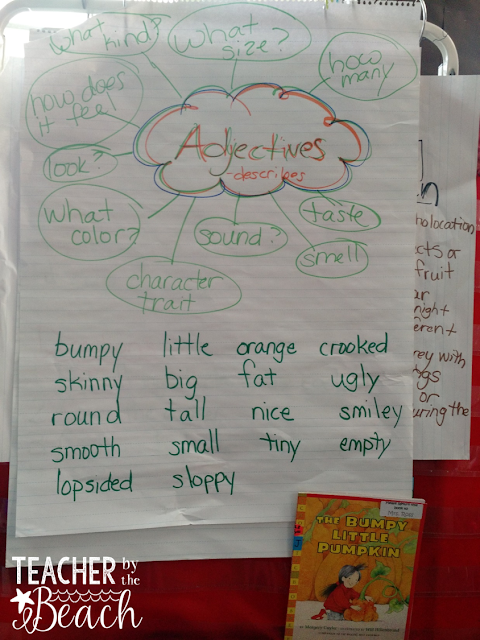 what kind?
what size?
how many
how does it feel
look?
Adjectives
-describes
what color?
sound?
taste
smell
character trait
bumpy little orange crooked
skinny big fat ugly
round tall nice smiley
smooth small tiny empty
lopsided sloppy
holocation
fruit
night
ferent
rey with
or
uring the
THE BUMPY
LITTLE
PUMPKIN
TEACHER by the
Beach